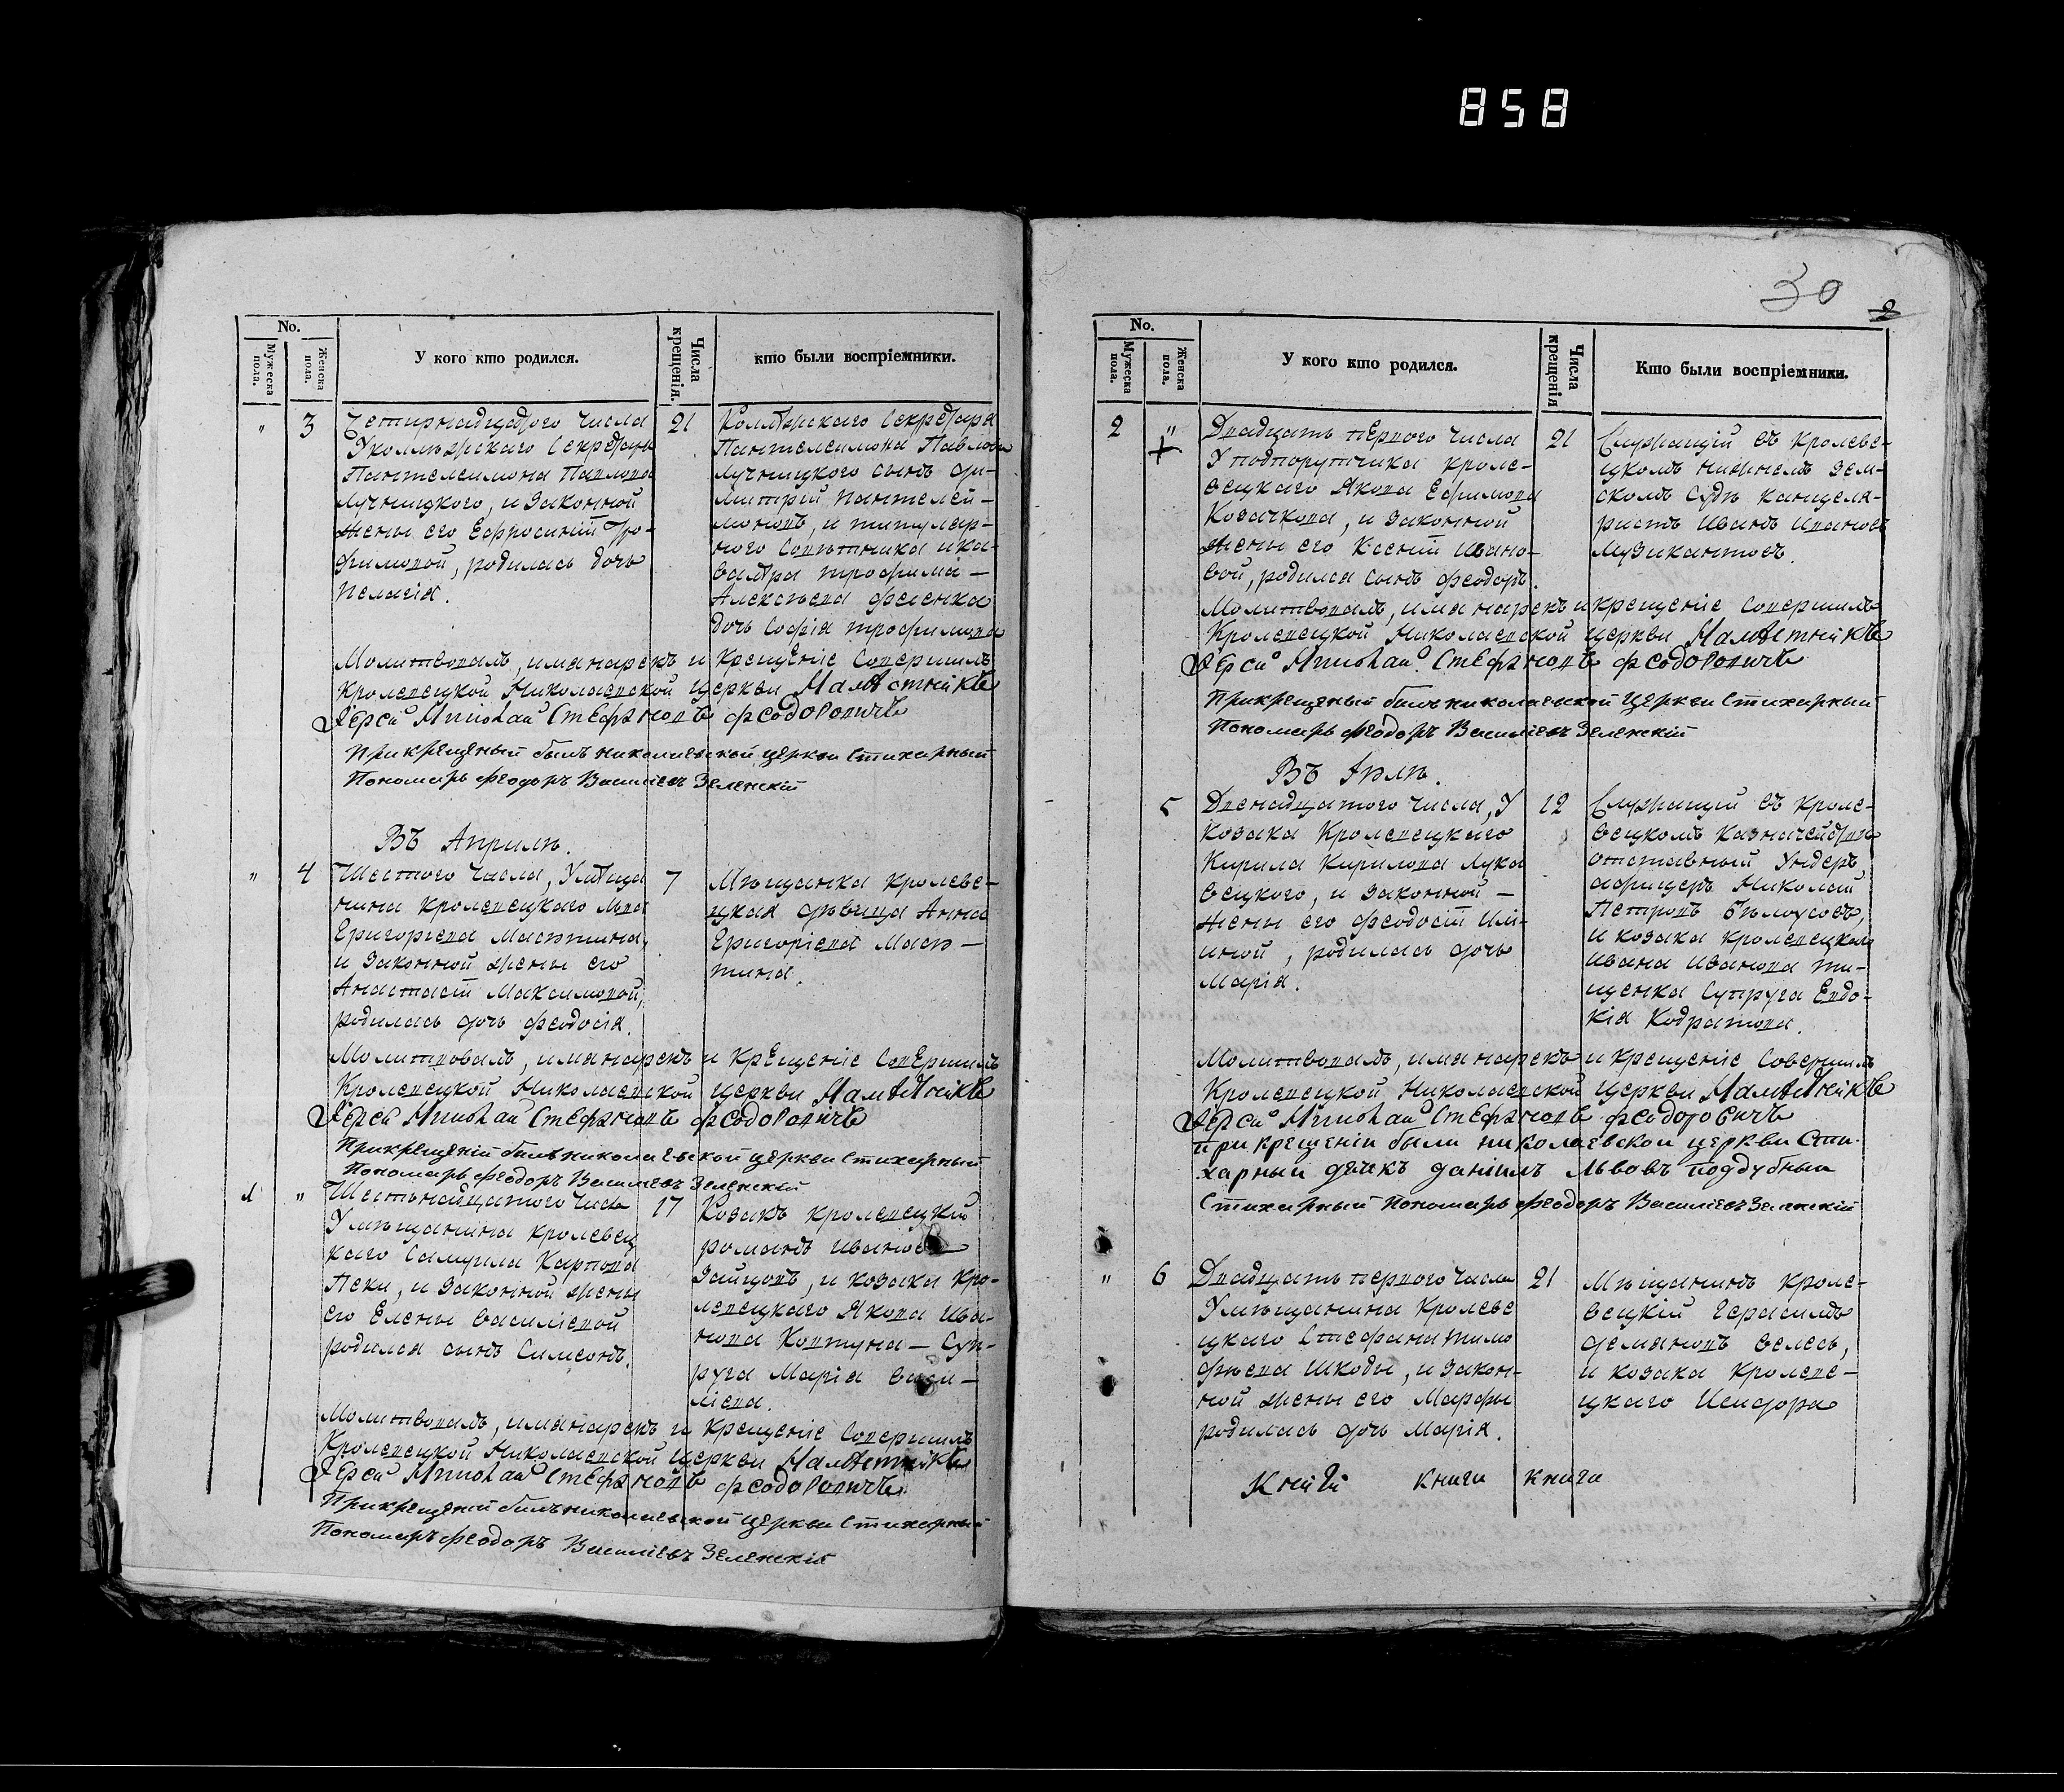 858
No.
Мужеска пола.
Женска пола.
У кого кто родился.
Числа крещенія.
кто были воспріемники.
" 3
Четирнадцатого числа
Уколлѣжского Секретаря
Пантелеимона Павлова
Лучницкого, и законной
жены его Ефросиніи Тро-
фимовой, родилась дочь
Пелагія.
21
Коллѣжского Секретаря
Пантелеимона Павлова
Лучницкого сынъ Ди-
митрій Пантелей-
моновъ, и титуляр-
ного Совѣтника и ка-
валѣра Трофима
Алексѣева Фесенка
дочь Софія Трофимова
Молитвовалъ, имя нарекъ и крещеніе Совершилъ
Кролевецкой Николаевской церкви Намѣстникъ
Іерей Михаилъ Стефановъ Феодоровичъ
При крещеный былъ николаевской церкви Стихарный
Пономарь Феодоръ Василіевъ Зеленскій
Въ Априлѣ.
" 4
Шестого числа, Умѣща
нина Кролевецкаго Льва
Григоріева
и законной жены его
Анастасіи Максимовой,
родилась дочь Феодосія.
7
Мѣщанка Кролеве-
цкая дѣвица Анна
Григоріева
Молитвовалъ, имя нарекъ и крещеніе Совершилъ
Кролевецкой Николаевской церкви Намѣстникъ
Іерей Михаилъ Стефановъ Феодоровичъ
При крещеній былъ николаевской церкви Стихарный
Пономарь Феодоръ Василіевъ Зеленскій
1 "
Шестьнадцатого числа
Умѣщанина Кролевец
каго Самуила Карпова
Пеки, и законной жены
его Елены Василіевой
родился сынъ Симеонъ.
17
Козакъ Кролевецкій
Романъ Ивановъ
Зайцовъ, и козака Кро-
левецкаго Якова Ива-
нова Ковтуна — Суп-
руга Марія Васи-
ліева.
Молитвовалъ, имя нарекъ и крещеніе Совершилъ
Кролевецкой Николаевской церкви Намѣстникъ
Іерей Михаилъ Стефановъ Феодоровичъ
При крещеній былъ николаевской церкви Стихарный
Пономаръ Феодоръ Василіевъ Зеленскій
30
2
No.
Мужеска пола.
Женска пола.
У кого кто родился.
Числа крещенія
Кто были воспріемники.
2 "
Двадцать первого числа
У подпорутчика Кроле-
вецкаго Якова Ефимова
Козачкова, и законной
жены его Ксеніи Ивано-
вой, родился сынъ Феодоръ.
21
Служащій въ Кролеве-
цкомъ нижнемъ зем-
скомъ Судѣ канцеля-
ристъ Иванъ Ивановъ
Музикантовъ.
Молитвовалъ, имя нарекъ и крещеніе Совершилъ
Кролевецкой Николаевской церкви Намѣстникъ
Іерей Михаилъ Стефановъ Феодоровичъ
При крещеный былъ николаевской церкви Стихарный
Пономарь Феодоръ Василіевъ Зеленскій
Въ Іюлѣ.
5
Двенадцатого числа, У
козака Кролевецкаго
Кирила Кирилова Лука
вецкого, и законной —
жены его Феодосіи Илі-
иной, родилась дочь
Марія.
12
Служащій въ Кроле-
вецкомъ Казначействѣ
отставный Ундеръ
афицеръ Николай
Петровъ Бѣлоусовъ,
и козака Кролевецкого
Ивана Иванова Ти-
щенка Супруга Евдо-
кія Кодратова.
Молитвовалъ, имя нарекъ и крещеніе Совершилъ
Кролевецкой Николаевской церкви Намѣстникъ
Іерей Михаилъ Стефановъ Феодоровичъ
при крещеніи были николаевской церкви Сти-
харный дячкъ Даніилъ Львовъ Поддубный
Стихарный Пономарь Феодоръ Василіевъ Зеленскій
" 6
Двадцать первого числа
Умѣщанина Кролеве
цкаго Стефана Тимо
фѣева Шкоды, и закон-
ной жены его Марфы
родилась дочь Марія.
21
Мѣщанинъ Кроле-
вецкій Герасимъ
Демановъ Велесь,
и козака Кролеве-
цкаго Исидора
Книги книги книги